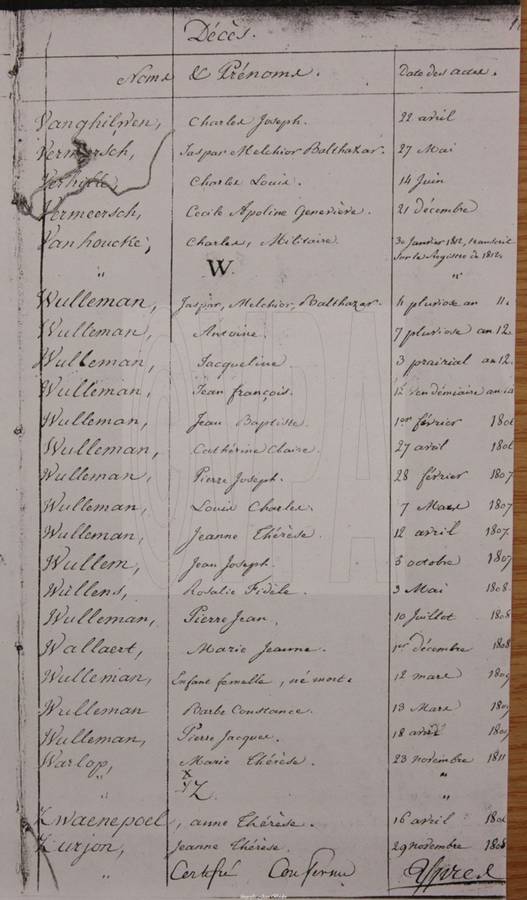 Décès.
Noms & Prénoms. Date des actes.
Vanghilwen, Charles Joseph. 22 avril
Vermeersch, Jaspar Melchior Balthazar. 27 Mai
Charles Louis. 14 Juin
Vermeersch, Cecile Apoline Geneviève. 21 décembre
Vanhoucke, Charles, Militaire. 30 Janvier 1812, transcrit
Sur le Registre de 1812.
" W. "
Wulleman, Jaspar, Melchior, Balthazar. 4 pluviose an 11.
Wulleman, Antoine. 7 pluviose an 12.
Wulleman, Jacqueline. 3 prairial an 12.
Wulleman, Jean françois. 12 Vendémiaire an
Wulleman, Jean Baptiste. 1er février
Wulleman, Cathérine Claire. 27 avril
Wulleman, Pierre Joseph. 28 février 1807
Wulleman, Louis Charles. 7 Mars 1807
Wulleman, Jeanne Thérèse. 12 avril 1807.
Wullem, Jean Joseph. 5 octobre 1807
Wullens, Rosalie Fidèle. 3 Mai 1808.
Wulleman, Pierre Jean. 10 Juillet 1808.
Wallaert, Marie Jeanne. 1er décembre 1808
Wulleman, Enfant femelle, né morte 12 mars 1809
Wulleman Barbe Constance. 13 Mars 1809
Wulleman, Pierre Jacques. 18 avril 1809
Warlop, Marie Thérèse. 23 novembre 1811
" X "
Y Z. "
Zwaenepoel, anne Thérèse. 16 avril
Zurjon, Jeanne Thérèse. 29 novembre 1808
" Certifié Conforme